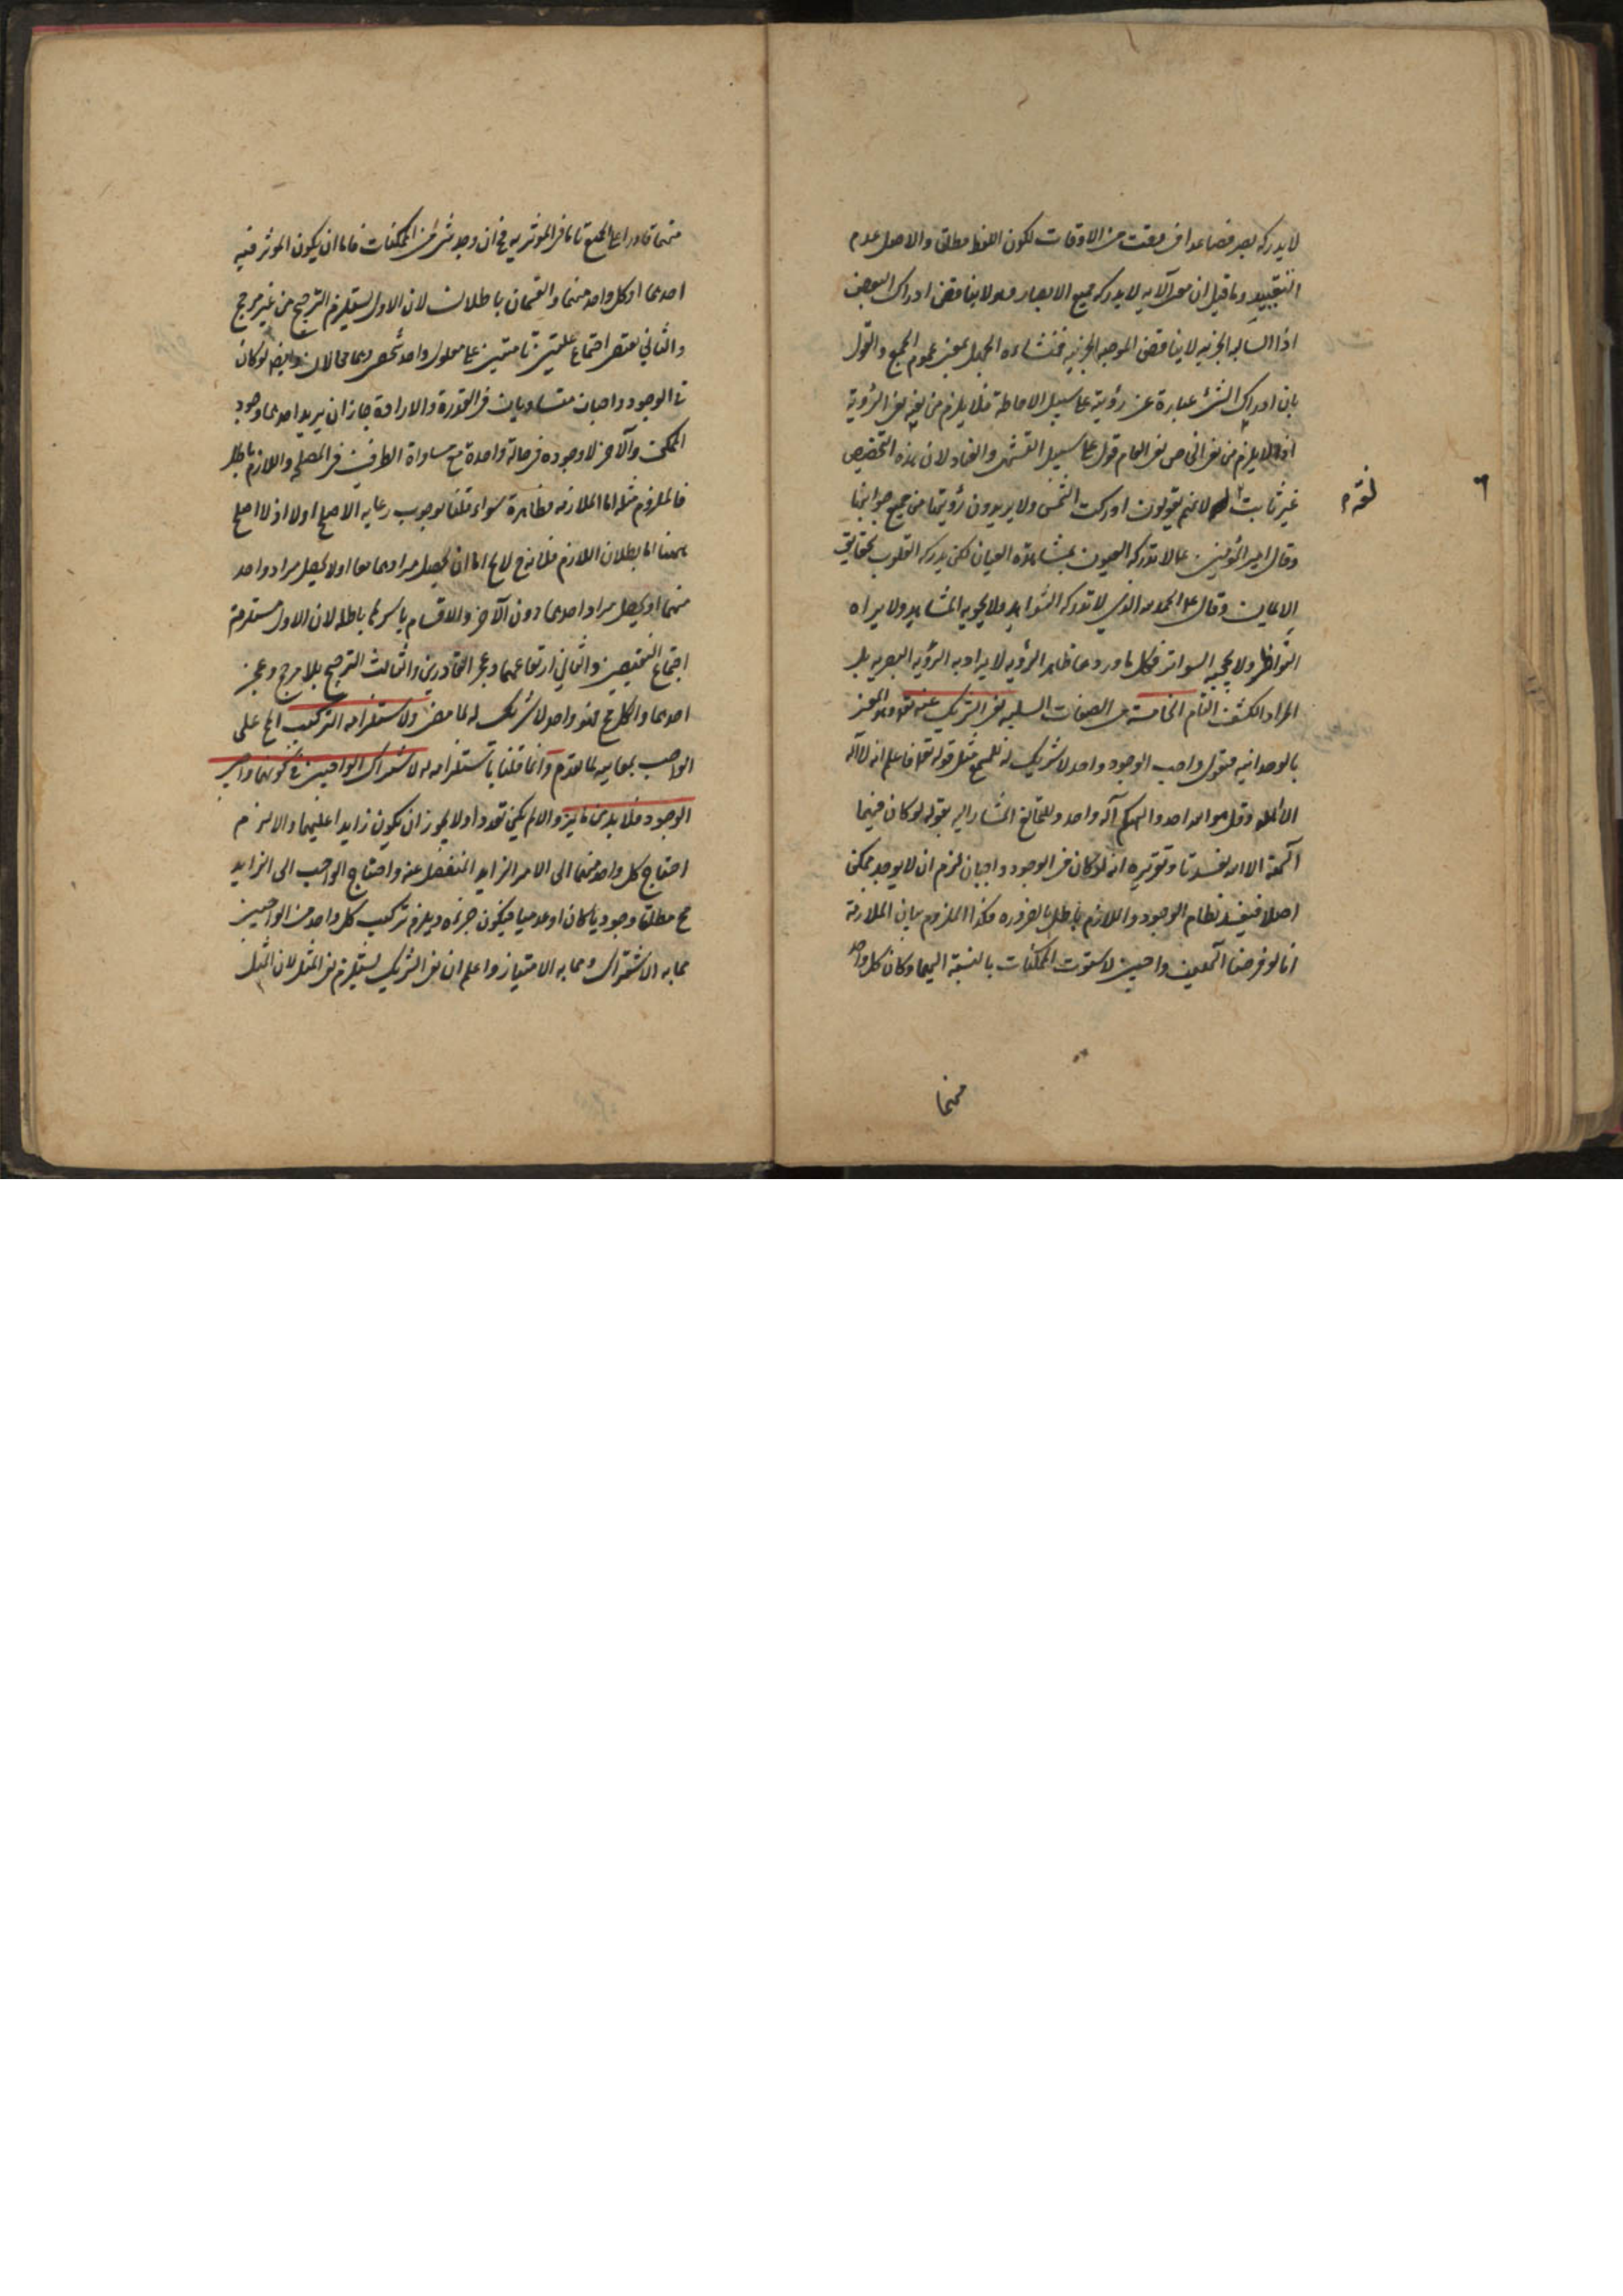 لا يدركه بصر فصاعدا في وقت من الاوقات لكون اللفظ مطلق والاصل عدم
التقييد وما قيل ان معنى الآيه لا يدركه جميع الابصار وهو لا يناقض ادراك البعض
اذ السالبه الجزئيه لا يناقض الموجبه الجزئيه فمنشاءه الجهل بمعنى عموم الجمع والقول
بان ادراك الشئ عبارة عن رؤيته على سبيل الاحاطة فلا يلزم من نفيه نفى الرؤية
اذ لا يلزم من نفى الخاص نفى العام قول على سبيل التشهى والعناد لان هذه التخصيص
غير ثابت لانهم يقولون ادركت الشمس ولا يريدون رؤيتها من جميع جوانبها
لغة م
وقال امير المؤمنين ع لا تدركه العيون بمشاهدة العيان لكن يدركه القلوب بحقايق
الايمان وقال ع الحمد لله الذي لا تدركه الشواهد ولا يحويه المشاهد ولا يراه
النواظر ولا يحجبه السواتر فكل ما ورد مما ظاهره الرؤيه لا يراد به الرؤيه البصريه بل
المراد الكشف التام الخامسة من الصفات السلبيه نفى الشريك عنه تع وهو المعنى
بالوحدانيه فنقول واجب الوجود واحد لا شريك له للسمع مثل قوله تع فاعلم انه لا اله
الا الله وقل هو الله احد والهكم اله واحد وللتمانع المشار اليه بقوله لو كان فيهما
آلهة الا الله لفسدتا وتقريره انه لو كان في الوجود واجبان لزم ان لا يوجد ممكن
اصلا فيفسد نظام الوجود واللازم باطل بالضروره فكذا الملزوم بيان الملازمة
انا لو فرضنا الهين واجبين لاستوت الممكنات بالنسبة اليهما وكان كل واحد
منهما
منهما قادرا على الجميع تاما في المؤثريه فح ان وجد شئ من الممكنات فاما ان يكون المؤثر فيه
احدهما او كل واحد منهما والقسمان باطلان لان الاول يستلزم الترجيح من غير مرجح
والثاني يقتضى اجتماع علتين تامتين على معلول واحد شخصى وهما محالان وايضا لو كان
في الوجود واجبان متساويان في القدرة والارادة جاز ان يريد احدهما وجود
الممكن والآخر لا وجوده في حالة واحدة مع مساواة الطرفين في المصلحه واللازم باطل
فالملزوم مثله اما الملازمه فظاهرة سواء قلنا بوجوب رعايه الاصلح اولا اذ لا اصلح
ههنا اما بطلان اللازم فلانه ح لا يخ اما ان يحصل مرادهما معا او لا يحصل مراد واحد
منهما او يحصل مراد احدهما دون الآخر والاقسام باسرها باطله لان الاول مستلزمة
اجتماع النقيضين والثاني ارتفاعهما وعجز القادرين والثالث الترجيح بلا مرجح وعجز
احدهما والكل مح فهو واحد لا شريك له لما مضى ولاستلزامه التركيب المح على
الواجب بمعانيه لما تقدم وانما قلنا باستلزامه له لاشتراك الواجبين في كونهما واجب
الوجود فلا بد من مايز والا لم يكن تعدد اولا يجوز ان يكون زايدا عليهما والا لزم
احتاج كل واحد منهما الى الامر الزايد المنفصل عنه واحتاج الواجب الى الزايد
مح مطلقا وجوديا كان او عدميا فيكون جزئه ويلزم تركيب كل واحد من الواجبين
مما به الاشتراك ومما به الامتياز واعلم ان نفى الشريك يستلزم نفى المثل لان المثل